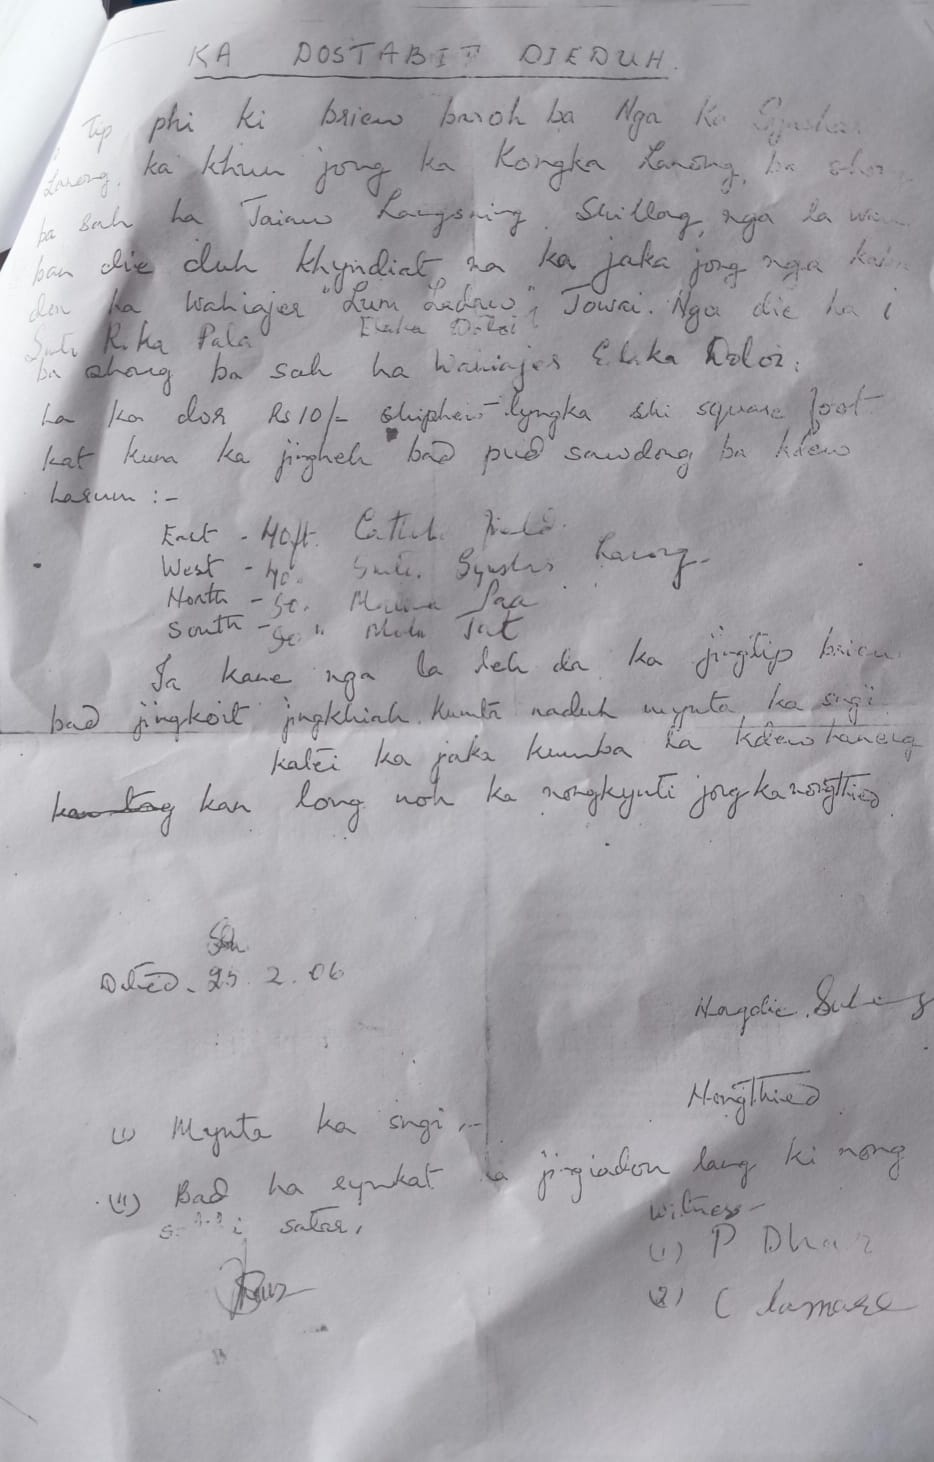 KA DOSTABIT DIEDUH.
Tip phi ki briew baroh ba Nga Ka
Larong, ka khun jong ka Kongka Larong, ba shong
ba sah ha Jaiaw Langsning Shillong, nga la
ban die duh khyndiat na ka jaka jong nga kaba
don ha Wahiajer "Lum Ladaw", Jowai. Nga die ha i
Smti Rika Pala Elaka Doloi
ba shong ba sah ha Wahiajer Elaka Doloi.
ha ka dor Rs 10/- shiphew lyngka shi square foot
kat kum ka jingheh bad pud sawdong ba kdew
harum :-
East - 40ft. Catholic
West - 40. Smti. Larong
North - 50.
South - 50 "
Ia kane nga la leh da ka jingtip briew
bad jingkoit jingkhiah. Kumta naduh mynta ka sngi
katei ka jaka kumba la kdew haneng
kan long noh ka nongkynti jong ka nongthied
Dated. 25. 2. 06
Nongdie.
Nongthied
(i) Mynta ka sngi :-
(ii) Bad ha eynkat ka jingiadon lang ki nong
satar.
Witness -
(1) P Dhar
(2) C Lamare